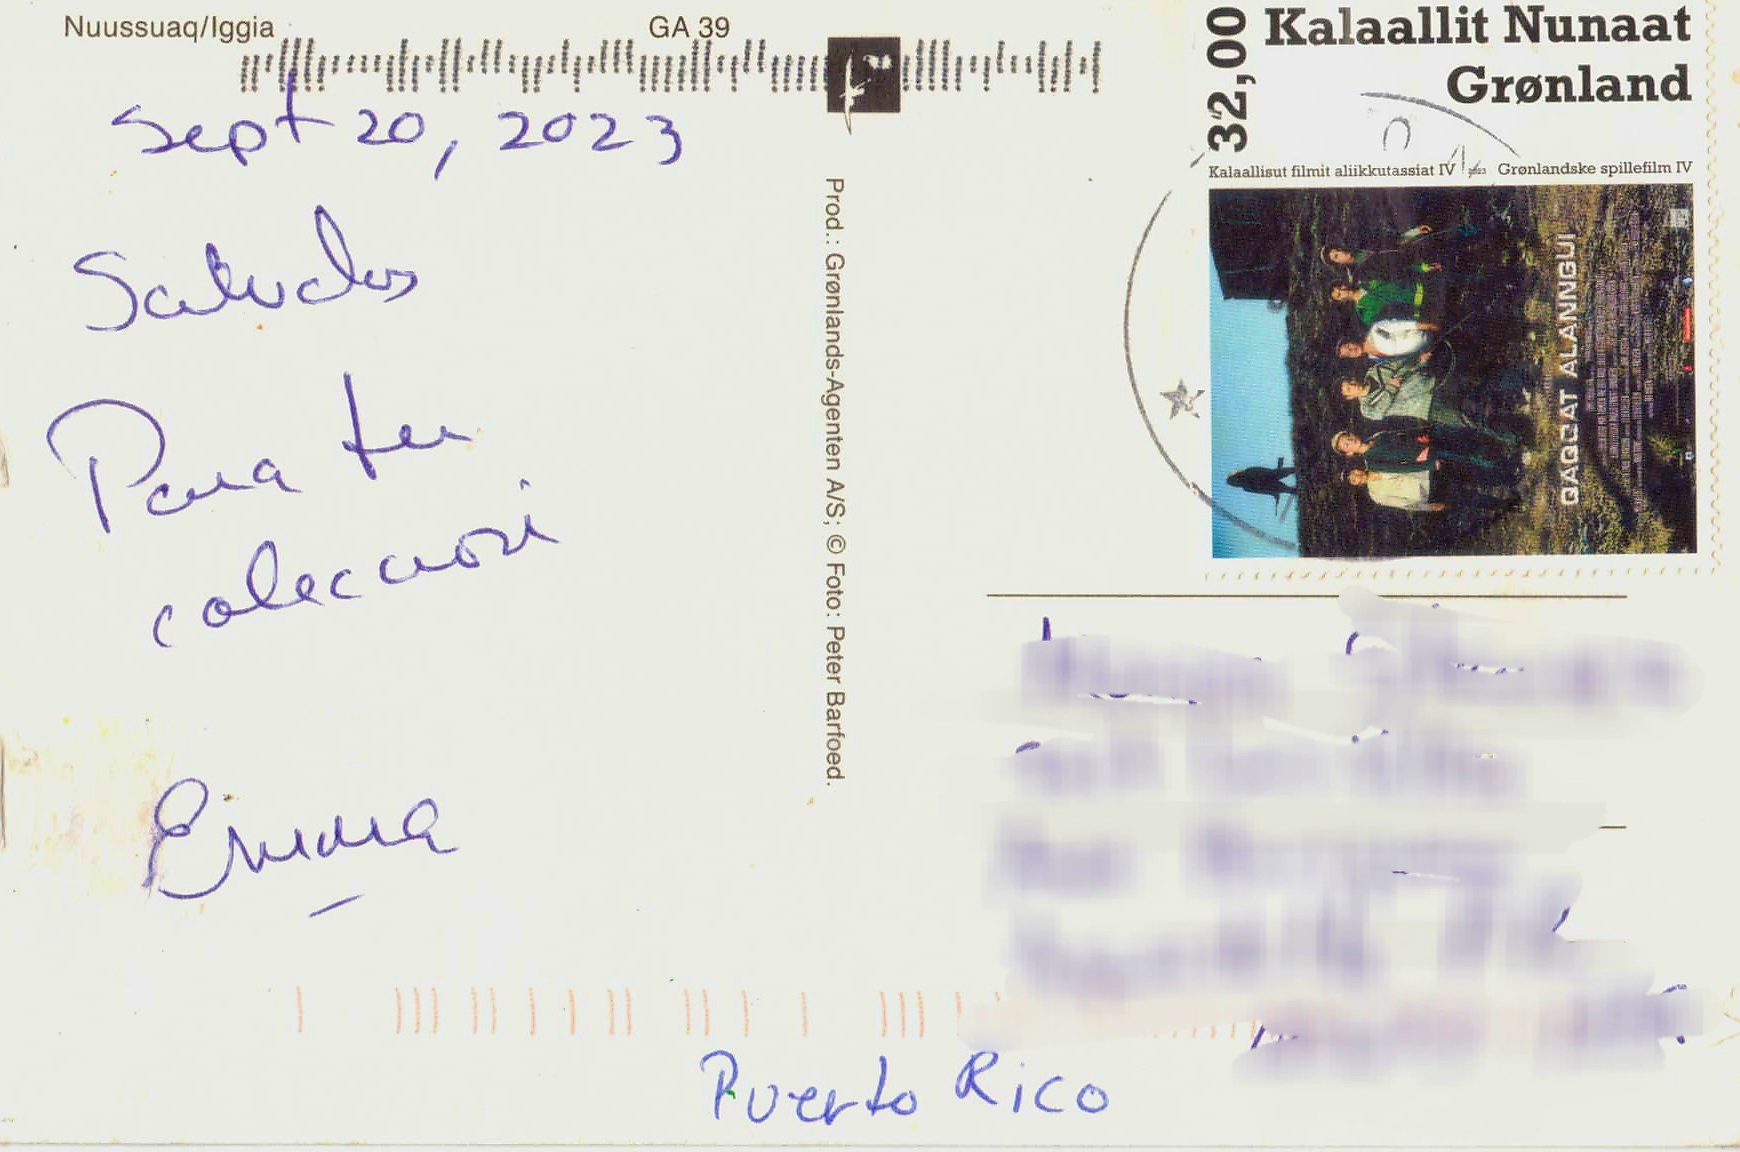 Nuussuaq/Iggia
GA 39
Sept 20, 2023
Saludos
Para tu
colección
Emma
Prod.: Grønlands-Agenten A/S; © Foto: Peter Barfoed.
32,00
Kalaallit Nunaat
Grønland
Kalaallisut filmit aliikkutassiat IV 2023 Grønlandske spillefilm IV
QAQQAT ALANNGUI
Puerto Rico